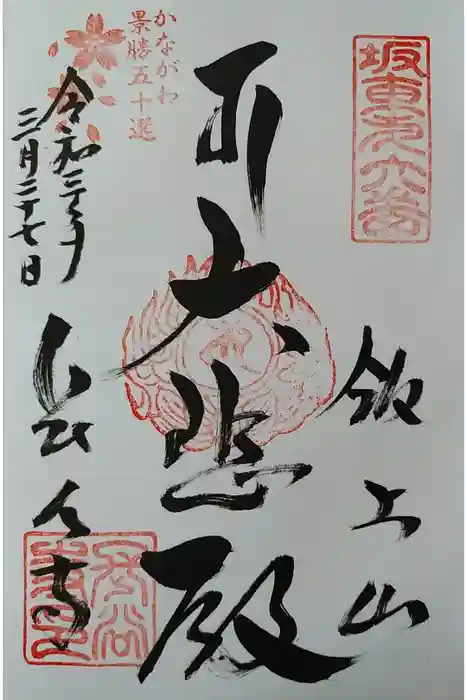 坂東第六番
飯上山
大悲殿
かながわ
景勝五十選
令和三年
三月二十七日
長谷寺
長谷
寺印